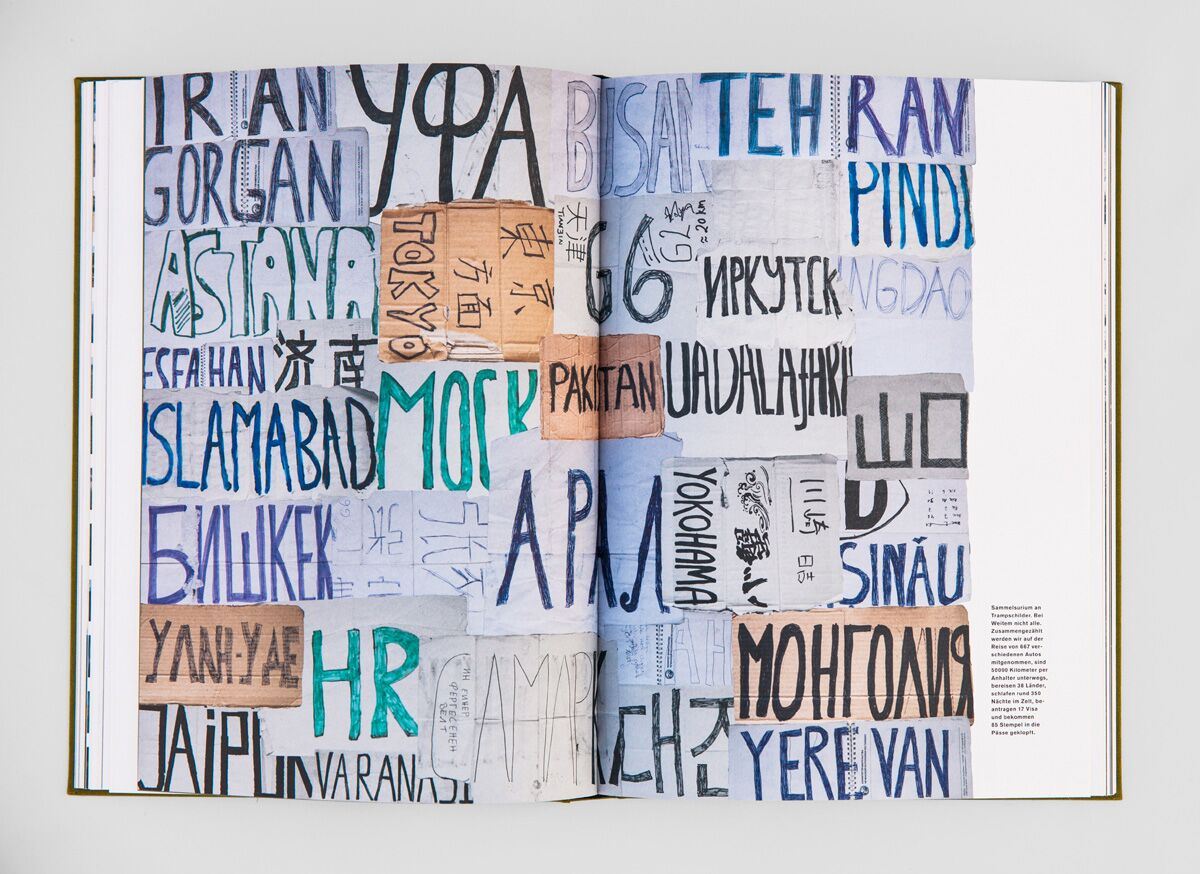 IRAN
УФА
BUSAN
TEHRAN
GORGAN
PINDI
ASTANA
TOKYO
東京
方面
天津
TIANJIN
G6
G6
≈ 20 km
ИРКУТСК
NGDAO
ESFAHAN
济南
PAKISTAN
UADALAJARA
ISLAMABAD
МОСК
ШО
БИШКЕК
G6
АРАЛ
YOKOHAMA
川崎
SINĂU
УЛАН-УДЕ
HR
МОНГОЛИЯ
JAIPUR
VARANASI
CH
YEREVAN
Sammelsurium an
Trampschilder. Bei
Weitem nicht alle.
Zusammengezählt
werden wir auf der
Reise von 667 ver-
schiedenen Autos
mitgenommen, sind
50000 Kilometer per
Anhalter unterwegs,
bereisen 38 Länder,
schlafen rund 350
Nächte im Zelt, be-
antragen 17 Visa
und bekommen
85 Stempel in die
Pässe geklopft.